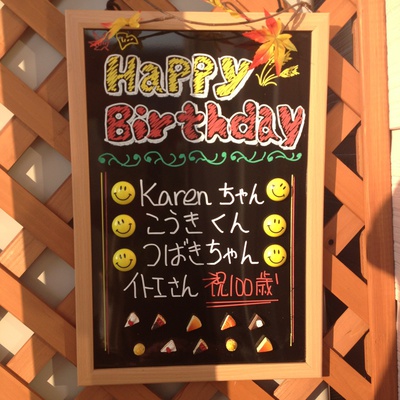 Happy
Birthday
Karenちゃん
こうきくん
つばきちゃん
イトエさん 祝100歳!